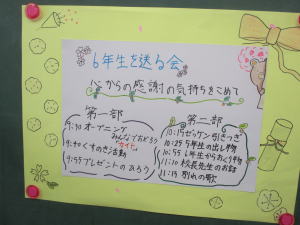 6年生を送る会
心からの感謝の気持ちをこめて
第一部
9:30 オープニング
みんなでおどろう
"カイト"
9:40 くすのき活動
9:55 プレゼントのおひろめ
第二部
10:15 ゼッケン引きつぎ
10:25 5年生の出し物
10:55 6年生からおくり物
11:10 校長先生のお話
11:15 別れの歌